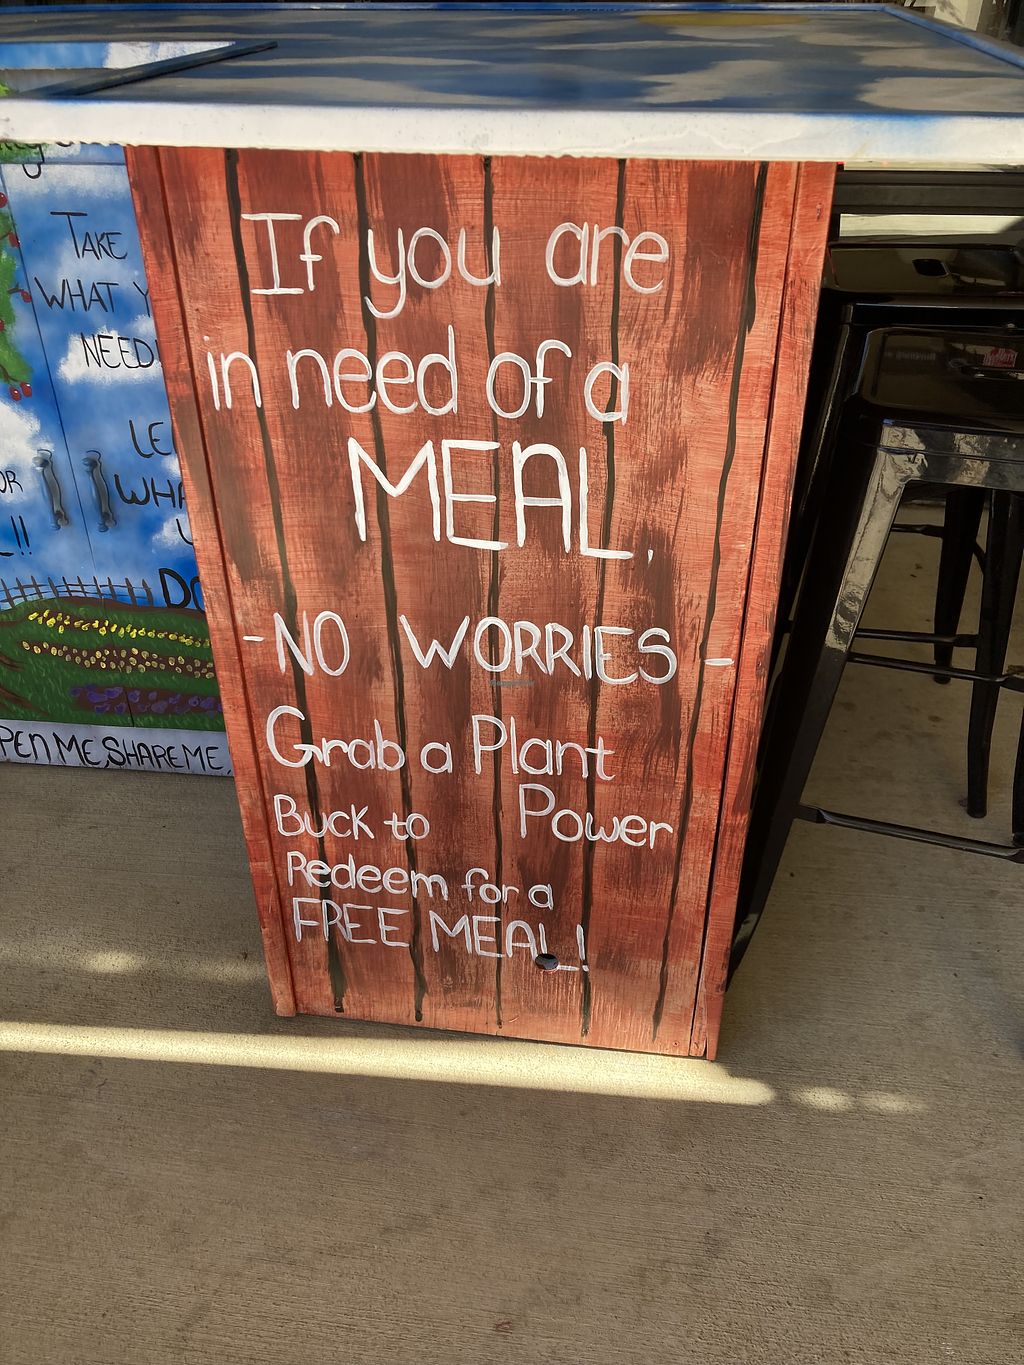 If you are
in need of a
MEAL.
-NO WORRIES-
Grab a Plant
Buck to Power
Redeem for a
FREE MEAL!
TAKE
WHAT Y
NEED
LE
WHA
U
DO
OR
L!!
PEN ME, SHARE ME,